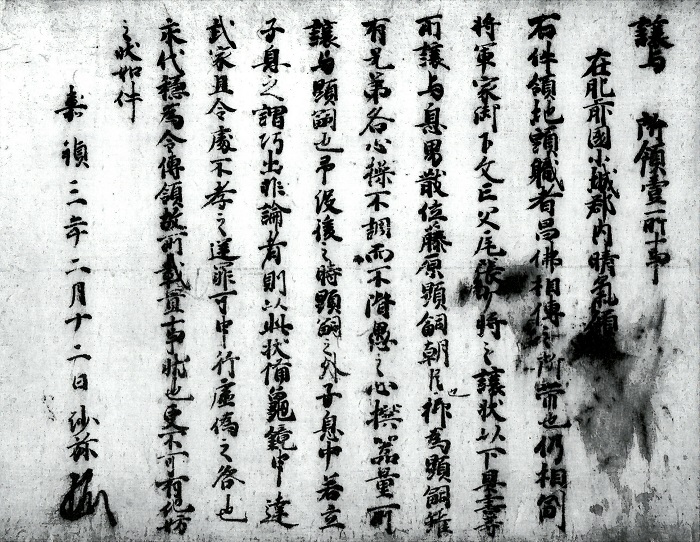 讓与 所領壹所事
在肥前國小城郡内晴氣領
右件領地頭職者昌佛相傳之所帶也仍相副
將軍家御下文亡父尾張少將之讓状以下具書等
所讓与息男散位藤原顯嗣朝臣也抑為顯嗣雖
有兄弟各心操不調而不階愚之心撰器量所
讓与顯嗣也平没後之時顯嗣之外子息中若立
子息之謂巧出非論者則以此状備龜鏡申達
武家且令處不孝之逆罪可申行虚偽之咎也
永代穩為令傳領故所載實事状也更不可有他妨
之状如件
嘉禎三年二月十二日 沙弥